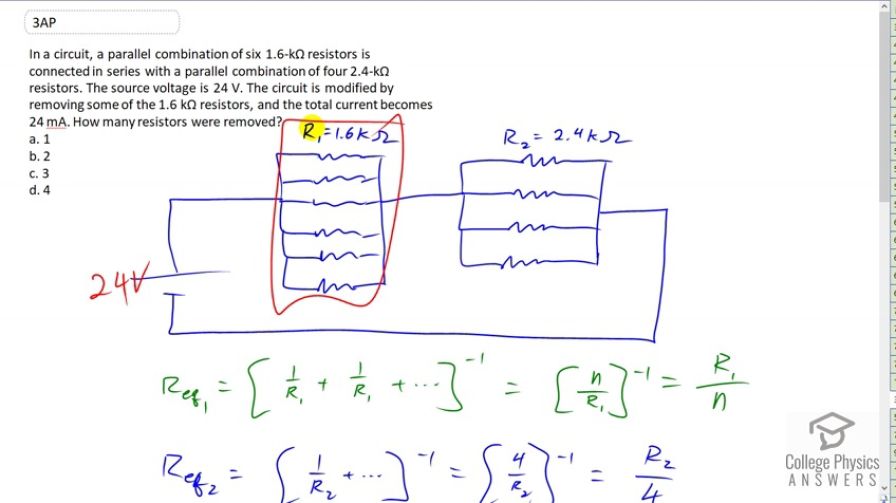 3AP
In a circuit, a parallel combination of six 1.6-kΩ resistors is
connected in series with a parallel combination of four 2.4-kΩ
resistors. The source voltage is 24 V. The circuit is modified by
removing some of the 1.6 kΩ resistors, and the total current becomes
24 mA. How many resistors were removed?
a. 1
b. 2
c. 3
d. 4
R₁ = 1.6 k Ω
R₂ = 2.4 k Ω
24V
Req₁ = [ 1/R₁ + 1/R₁ + ... ]⁻¹ = [ n/R₁ ]⁻¹ = R₁/n
Req₂ = [ 1/R₂ + ... ]⁻¹ = [ 4/R₂ ]⁻¹ = R₂/4
College Physics
ANSWERS